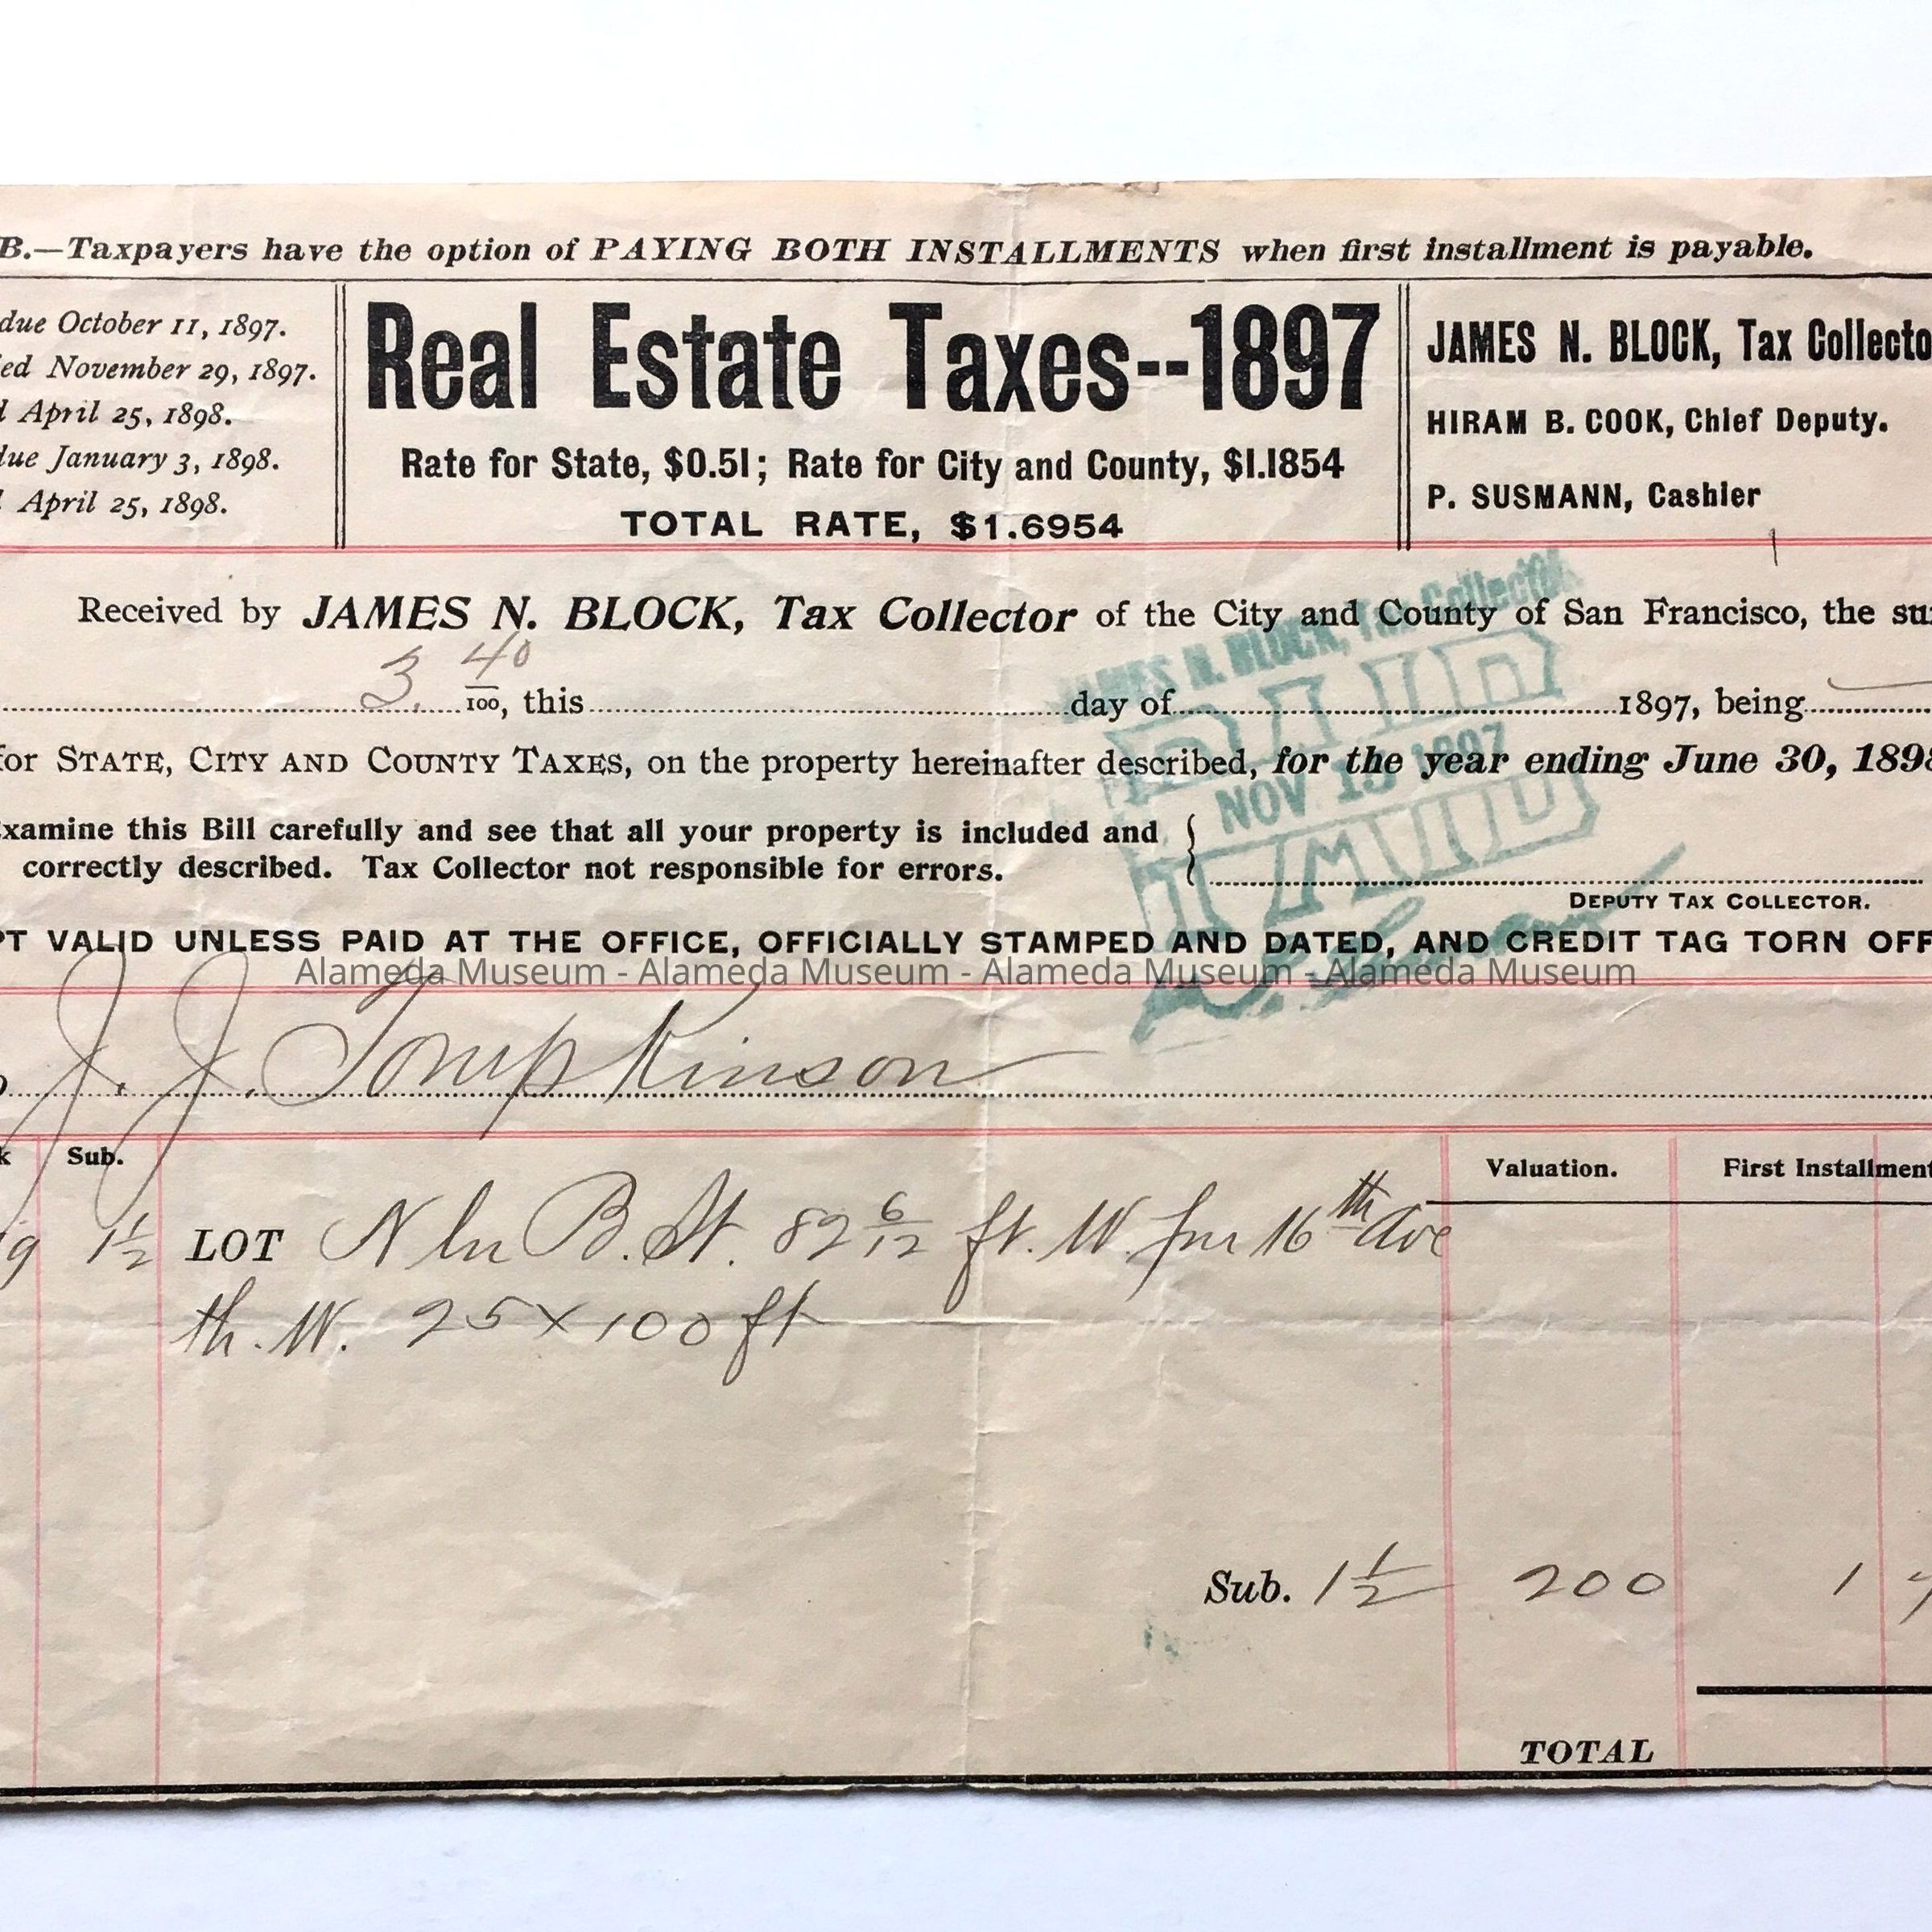 B.—Taxpayers have the option of PAYING BOTH INSTALLMENTS when first installment is payable.
due October 11, 1897.
ed November 29, 1897.
April 25, 1898.
due January 3, 1898.
April 25, 1898.
Real Estate Taxes--1897
Rate for State, $0.51; Rate for City and County, $1.1854
TOTAL RATE, $1.6954
JAMES N. BLOCK, Tax Collecto
HIRAM B. COOK, Chief Deputy.
P. SUSMANN, Cashier
Received by JAMES N. BLOCK, Tax Collector of the City and County of San Francisco, the su
3. 40/100, this day of 1897, being
for STATE, CITY AND COUNTY TAXES, on the property hereinafter described, for the year ending June 30, 1898
JAMES N. BLOCK, Tax Collector
PAID
NOV 15 1897
Examine this Bill carefully and see that all your property is included and
correctly described. Tax Collector not responsible for errors.
DEPUTY TAX COLLECTOR.
PT VALID UNLESS PAID AT THE OFFICE, OFFICIALLY STAMPED AND DATED, AND CREDIT TAG TORN OFF
Alameda Museum - Alameda Museum - Alameda Museum - Alameda Museum
J. J. Tompkinson
k Sub. Valuation. First Installment
9 1 1/2 LOT N ln B. St. 82 6/12 ft. W. fm 16th Ave
th. W. 25 x 100 ft
Sub. 1 1/2 200 1
TOTAL